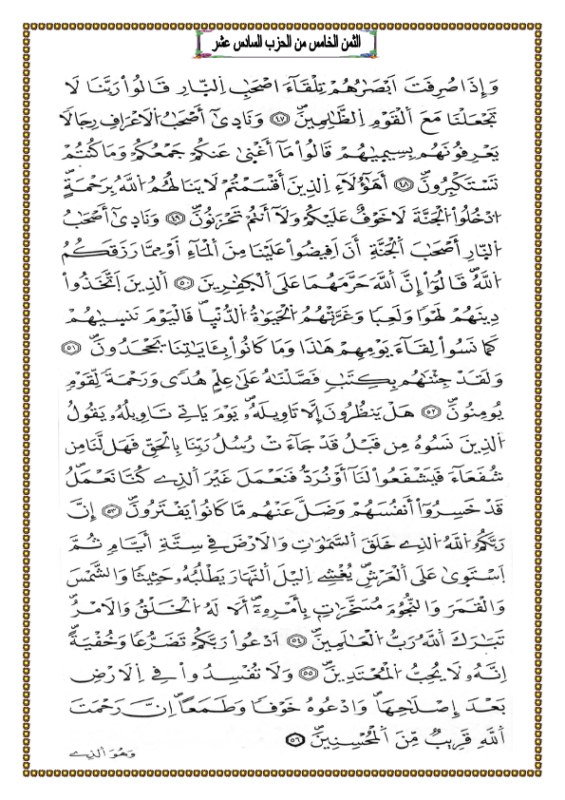 الثمن الخامس من الحزب السادس عشر
وَإِذَا صُرِفَتَ اَبْصَٰرُهُمْ تِلْقَآءَ اصْحَٰبِ اِ۬لنّ۪ارِ قَالُواْ رَبَّنَا لَا
تَجْعَلْنَا مَعَ اَ۬لْقَوْمِ اِ۬لظَّٰلِمِينَۖ ٤٧ وَنَاد۪ىٰٓ أَصْحَٰبُ اُ۬لَاعْرَافِ رِجَالاٗ
يَعْرِفُونَهُم بِسِيم۪يٰهُمْ قَالُواْ مَآ أَغْن۪ىٰ عَنكُمْ جَمْعُكُمْ وَمَا كُنتُمْ
تَسْتَكْبِرُونَۖ ٤٨ أَهَٰٓؤُلَآءِ اِ۬لذِينَ أَقْسَمْتُمْ لَا يَنَالُهُمُ اُ۬للَّهُ بِرَحْمَةٍۖ
اُ۟دْخُلُواْ اُ۬لْجَنَّةَ لَا خَوْفٌ عَلَيْكُمْ وَلَآ أَنتُمْ تَحْزَنُونَۖ ٤٩ وَنَاد۪ىٰٓ أَصْحَٰبُ
اُ۬لنّ۪ارِ أَصْحَٰبَ اَ۬لْجَنَّةِ أَنَ اَفِيضُواْ عَلَيْنَا مِنَ اَ۬لْمَآءِ اَ۬وْ مِمَّا رَزَقَكُمُ
اُ۬للَّهُۖ قَالُوٓاْ إِنَّ اَ۬للَّهَ حَرَّمَهُمَا عَلَى اَ۬لْكٰ۪فِرِينَ ٥٠ اَ۬لذِينَ اَ۪تَّخَذُواْ
دِينَهُمْ لَهْواٗ وَلَعِباٗ وَغَرَّتْهُمُ اُ۬لْحَيَوٰةُ اُ۬لدُّنْي۪اۖ فَالْيَوْمَ نَنس۪يٰهُمْ
كَمَا نَسُواْ لِقَآءَ يَوْمِهِمْ هَٰذَا وَمَا كَانُواْ بِـَٔايَٰتِنَا يَجْحَدُونَۖ ٥١
وَلَقَدْ جِئْنَٰهُم بِكِتَٰبٖ فَصَّلْنَٰهُ عَلَىٰ عِلْمٍ هُدىٗ وَرَحْمَةٗ لِّقَوْمٖ
يُومِنُونَۖ ٥٢ هَلْ يَنظُرُونَ إِلَّا تَاوِيلَهُۥۖ يَوْمَ يَاتِے تَاوِيلُهُۥ يَقُولُ
اُ۬لذِينَ نَسُوهُ مِن قَبْلُ قَدْ جَآءَتْ رُسُلُ رَبِّنَا بِالْحَقِّ فَهَل لَّنَا مِن
شُفَعَآءَ فَيَشْفَعُواْ لَنَآ أَوْ نُرَدُّ فَنَعْمَلَ غَيْرَ اَ۬لذِے كُنَّا نَعْمَلُۖ
قَدْ خَسِرُوٓاْ أَنفُسَهُمْ وَضَلَّ عَنْهُم مَّا كَانُواْ يَفْتَرُونَۖ ٥٣ إِنَّ
رَبَّكُمُ اُ۬للَّهُ اُ۬لذِے خَلَقَ اَ۬لسَّمَٰوَٰتِ وَالَارْضَ فِے سِتَّةِ أَيَّامٖ ثُمَّ
اَ۪سْتَو۪ىٰ عَلَى اَ۬لْعَرْشِۖ يُغْشِے اِ۬ليْلَ اَ۬لنَّهَارَ يَطْلُبُهُۥ حَثِيثاٗ وَالشَّمْسَ
وَالْقَمَرَ وَالنُّجُومَ مُسَخَّرَٰتِۢ بِأَمْرِهِۦٓۖ أَلَا لَهُ اُ۬لْخَلْقُ وَالَامْرُۖ
تَبَٰرَكَ اَ۬للَّهُ رَبُّ اُ۬لْعَٰلَمِينَۖ ٥٤ اَ۟دْعُواْ رَبَّكُمْ تَضَرُّعاٗ وَخُفْيَةًۖ
اِنَّهُۥ لَا يُحِبُّ اُ۬لْمُعْتَدِينَۖ ٥٥ وَلَا تُفْسِدُواْ فِے اِ۬لَارْضِ
بَعْدَ إِصْلَٰحِهَاۖ وَادْعُوهُ خَوْفاٗ وَطَمَعاًۖ اِنَّ رَحْمَتَ
اَ۬للَّهِ قَرِيبٞ مِّنَ اَ۬لْمُحْسِنِينَۖ ٥٦
وَهُوَ اَ۬لذِے